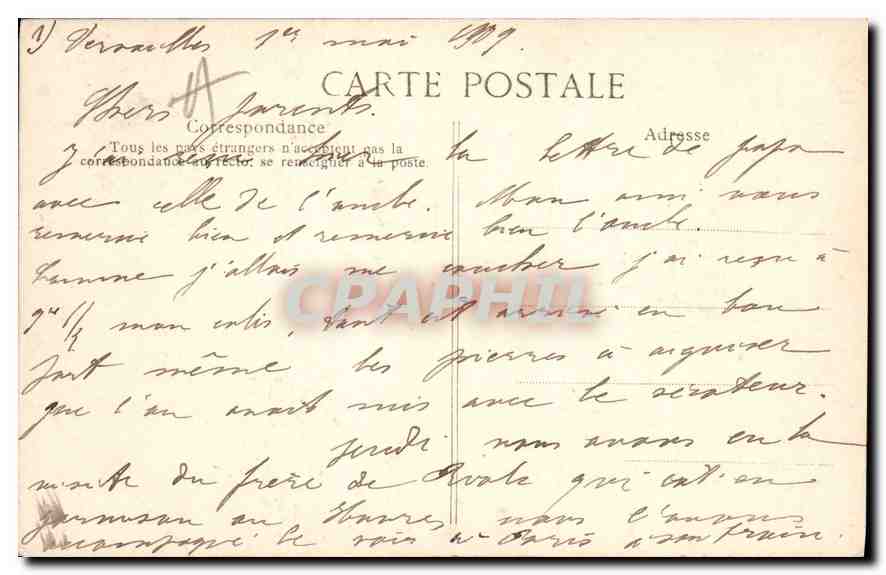 1) Versailles 1er mai 1909.
CARTE POSTALE
Chers parents.
Correspondance
Adresse
Tous les pays étrangers n'acceptent pas la
correspondance au recto: se renseigner à la poste.
J'ai reçu hier la lettre de papa
avec celle de l'oncle. Mon ami vous
remercie bien et remercie bien l'oncle.
Comme j'allais me coucher j'ai reçu à
9h 1/2 mon colis, tout est arrivé en bon
port même les pierres à aiguiser
que l'on avait mis avec le
Jeudi nous avons eu la
visite du frère de qui est en
garnison au Havre nous l'avons
accompagné le soir à Paris à son train.
CPAPHIL